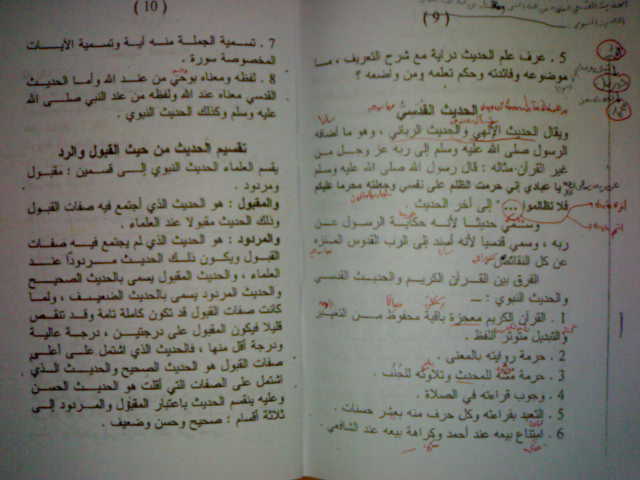 ( 9 )
5 . عرف علم الحديث دراية مع شرح التعريف ، مــا
موضوعه وفائدته وحكم تعلمه ومن واضعه ؟
الحديث القدسي
ويقال الحديث الإلهي والحديث الرباني ، وهو ما أضافه
الرسول صلى الله عليه وسلم إلى ربه عز وجل مــن
غير القرآن مثاله : قال رسول الله صلى الله عليه وسلم
يا عبادي إني حرمت الظلم على نفسي وجعلته محرما عليكم
فلا تظالموا ... " إلى آخر الحديث .
وسمي حديثا لأنه حكاية الرسول عــن
ربه ، وسمي قدسيا لأنه أسند إلى الرب القدوس المنزه
عن كل النقائص .
الفرق بين القـرآن الكريـم والحديـث القدسـي
والحديث النبوي : ــ
1 . القرآن الكريم معجزة باقية محفوظ مــن التغيير
والتبديل متواتر اللفظ .
2 . حرمة روايته بالمعنى .
3 . حرمة مسه للمحدث وتلاوته للجنب .
4 . وجوب قراءته في الصلاة .
5 . التعبد بقراءته وكل حرف منه بعشر حسنات .
6 . امتناع بيعه عند أحمد وكراهة بيعه عند الشافعي .
( 10 )
7 . تسمية الجملة منه آية وتسمية الآيــات
المخصوصة سورة .
8 . لفظه ومعناه بوحي من عنـد الله وأمـا الحديـث
القدسي معناه عند الله ولفظه من عند النبي صلـى الله
عليه وسلم وكذلك الحديث النبوي .
تقسيم الحديث من حيث القبول والرد
يقسم العلماء الحديث النبوي إلـى قسمين : مقبـول
ومردود .
والمقبول : هو الحديث الذي اجتمع فيه صفات القبول
وذلك الحديث مقبولا عند العلماء .
والمردود : هو الحديث الذي لم يجتمع فيـه صفـات
القبول ويكـون ذلـك الحديـث مـردودًا عنــد
العلماء ، والحديث المقبول يسمى بالحديث الصحيـح
والحديث المردود يسمى بالحديث الضعيـف ، ولمـا
كانت صفات القبول قد تكون كاملة تامة وقـد تنقـص
قليلا فيكون المقبول على درجتيـن ، درجـة عاليـة
ودرجة أقل منها ، فالحديث الذي اشتمل علـى أعلـى
صفات القبول هو الحديث الصحيح والحديث الـذي
اشتمل على الصفات التي أقلت هو الحديـث الحسن
وعليه ينقسم الحديث باعتبار المقبول والمـردود إلـى
ثلاثة أقسام : صحيح وحسن وضعيف .